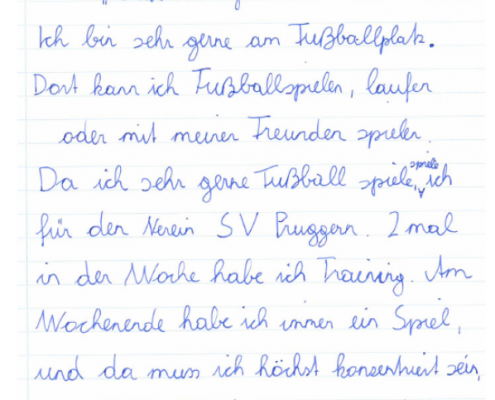 Ich bin sehr gerne am Fußballplatz.
Dort kann ich Fußballspielen, laufen
oder mit meinen Freunden spielen.
Da ich sehr gerne Fußball spiele, spiele ich
für den Verein SV Pruggern. 2 mal
in der Woche habe ich Training. Am
Wochenende habe ich immer ein Spiel,
und da muss ich höchst konsentriert sein,